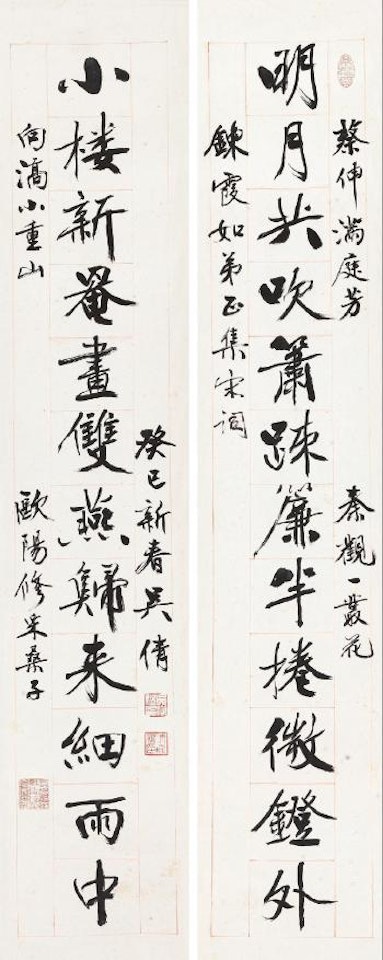 蔡伸滿庭芳
秦觀一叢花
明月共吹簫疎簾半捲微鐙外
鍊霞如弟正集宋词
小楼新罨畫雙燕歸来細雨中
向滈小重山
歐陽修采桑子
癸巳新春吴倩